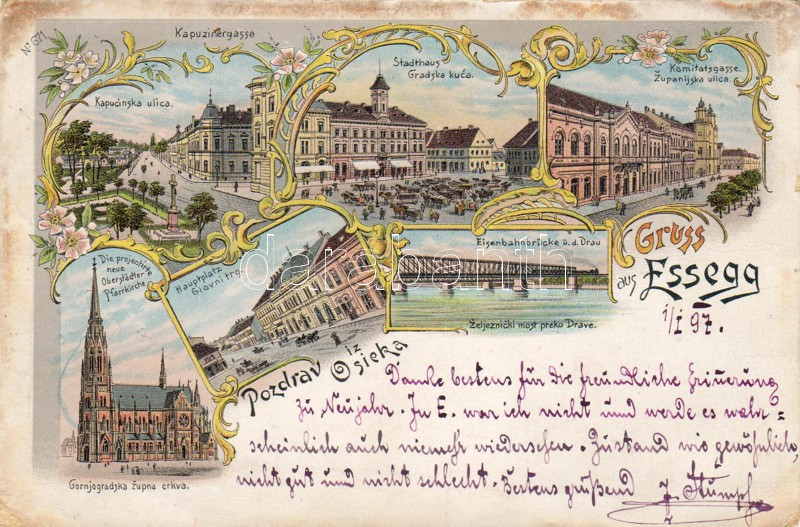 No 671
Kapuzinergasse
Kapucinska ulica.
Stadthaus
Gradska kuća.
Komitatsgasse.
Županijska ulica.
Die projectirte
neue
Oberstädter
Pfarrkirche
Hauptplatz
Glavni trg
Eisenbahnbrücke ü. d. Drau
Željeznički most preko Drave.
Gruss
aus Essegg
1/I 97.
Pozdrav iz Osieka
Gornjogradska župna crkva.
Danke bestens für die freundliche Erinnerung
zu Neujahr. In E. war ich nicht und werde es wahr=
scheinlich auch niemehr wiedersehen. Zustand wie gewöhnlich,
nicht gut und nicht schlecht. Bestens grüßend J. Stumpf
darabanth.com